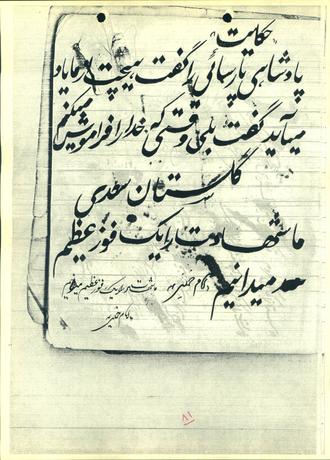 حکایت
پادشاهی پارسائی را گفت هیچت از ما یاد
میآید گفت بلی وقتی که خدا را فراموش میکنم
گلستان سعدی
ما شهادت را یک فوز عظیم
میدانیم امام خمینی
ما شهادت را یک فوز عظیم میدانیم
امام خمینی
۸۱